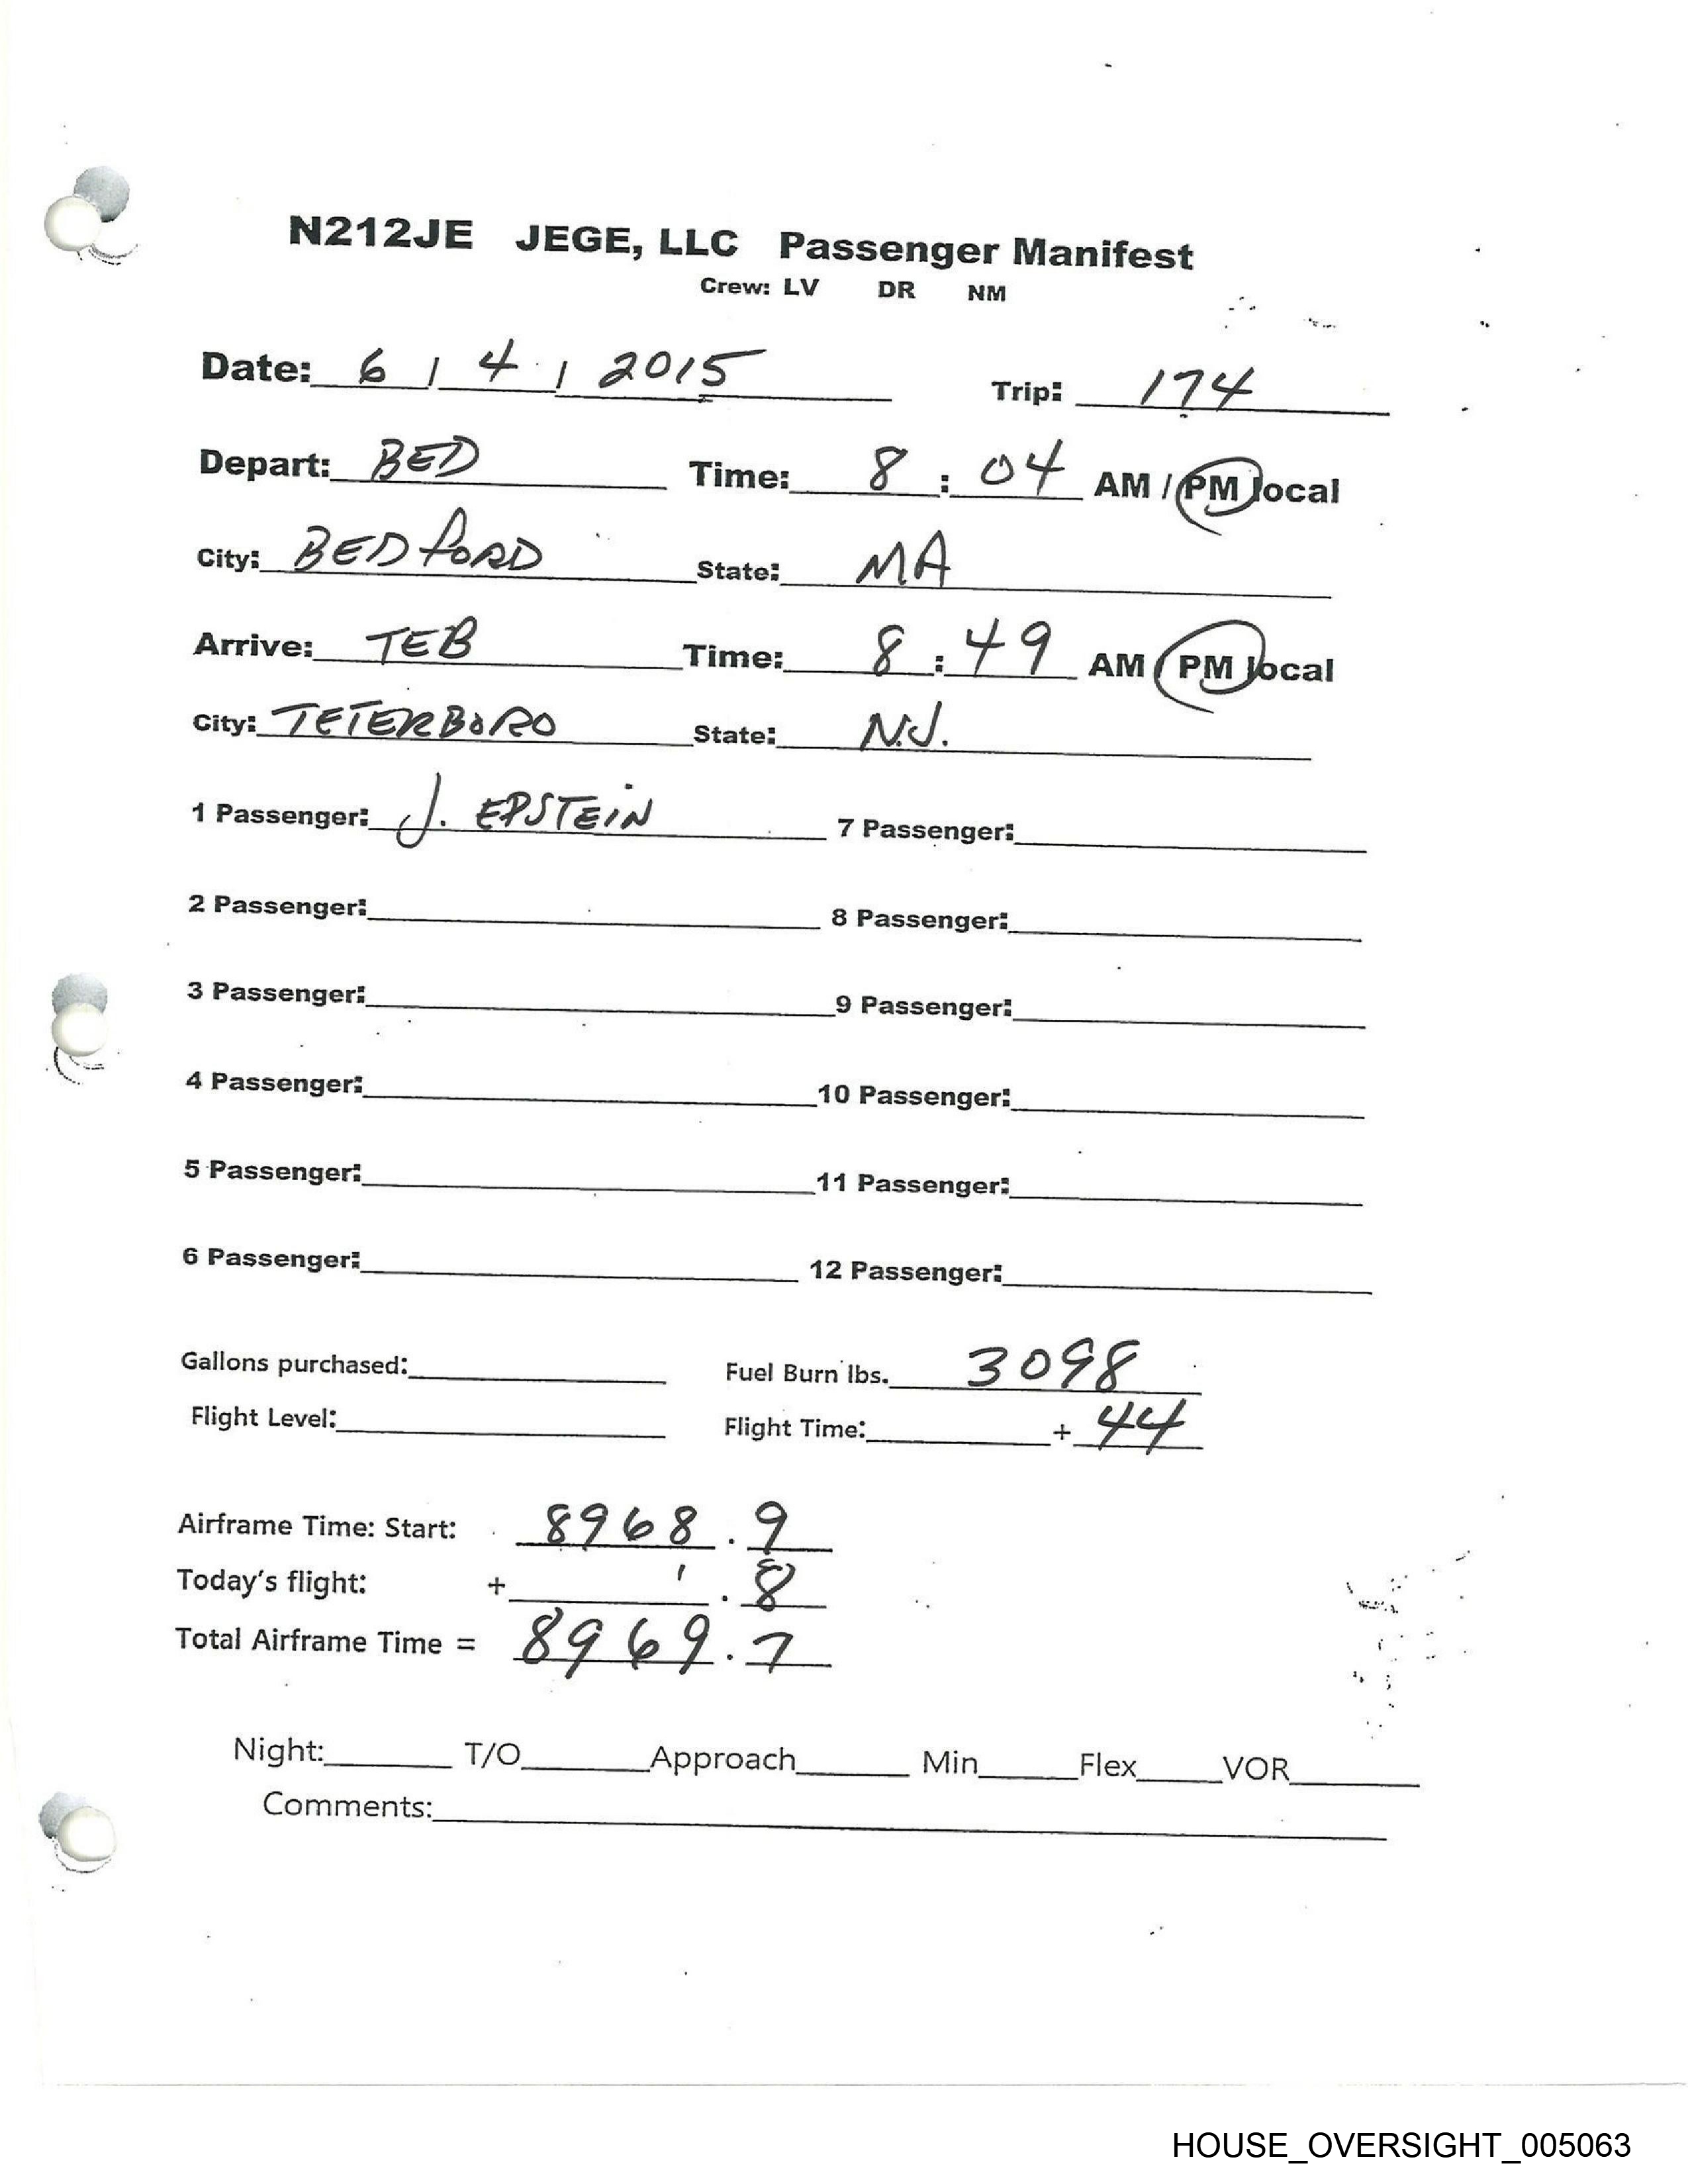 N212JE JEGE, LLC Passenger Manifest
Crew: LV DR NM
Date: 6 / 4 / 2015 Trip: 174
Depart: BED Time: 8 : 04 AM / PM local
City: BEDFORD State: MA
Arrive: TEB Time: 8 : 49 AM / PM local
City: TETERBORO State: N.J.
1 Passenger: J. EPSTEIN 7 Passenger:
2 Passenger: 8 Passenger:
3 Passenger: 9 Passenger:
4 Passenger: 10 Passenger:
5 Passenger: 11 Passenger:
6 Passenger: 12 Passenger:
Gallons purchased: Fuel Burn lbs. 3098
Flight Level: Flight Time: + 44
Airframe Time: Start: 8968 . 9
Today's flight: + ' . 8
Total Airframe Time = 8969 . 7
Night: T/O Approach Min Flex VOR
Comments:
HOUSE_OVERSIGHT_005063